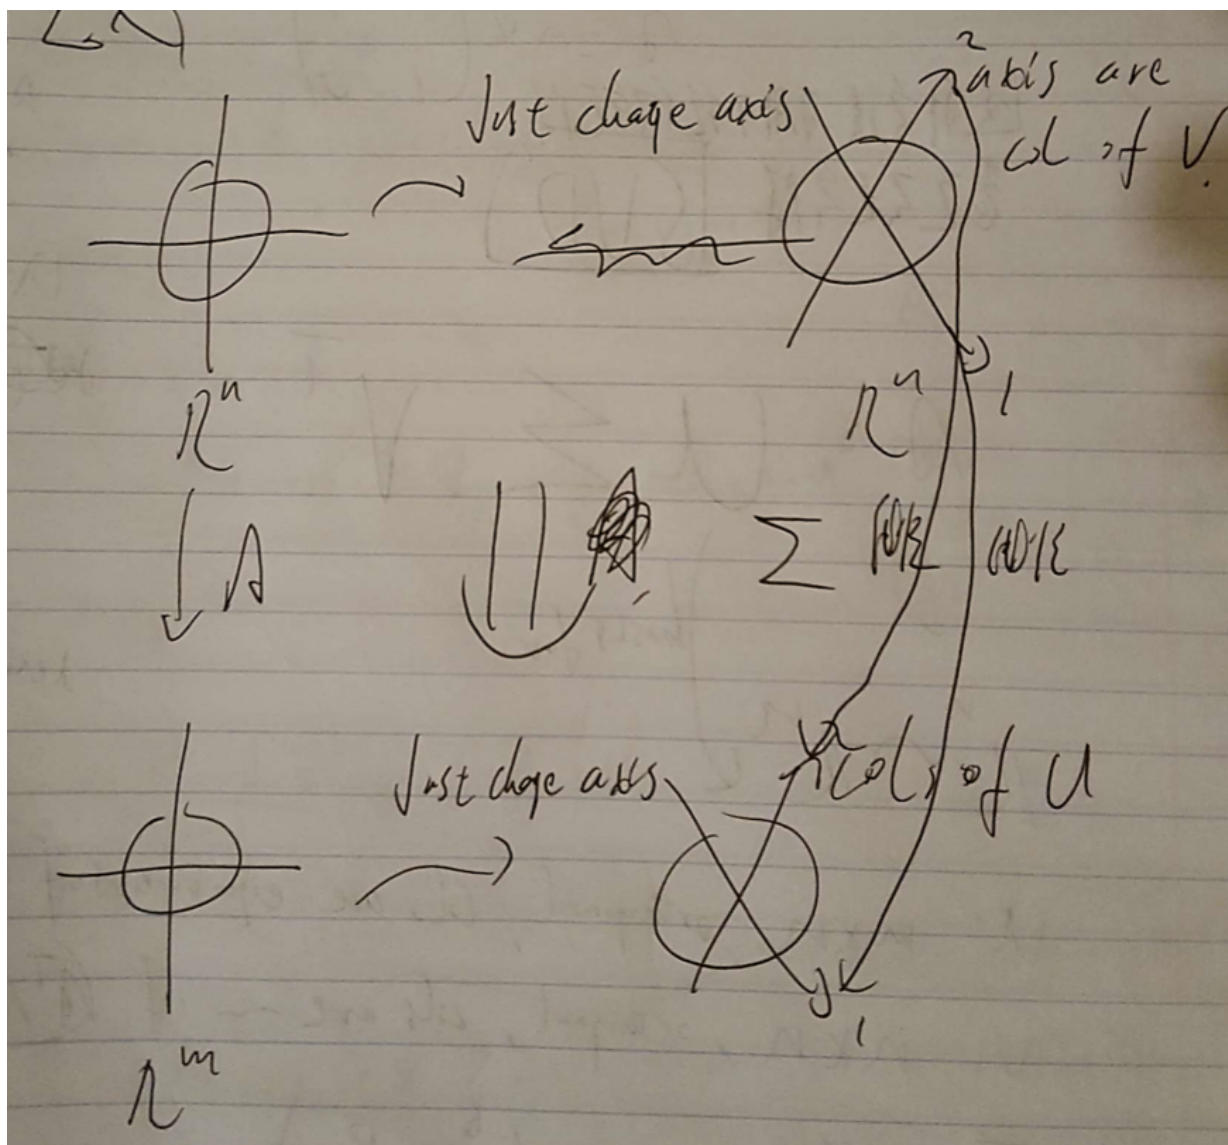 Just chage axis
2
axis are
col of V.
R^n
R^n
1
A
Σ
Just chage axis
cols of U
1
R^m